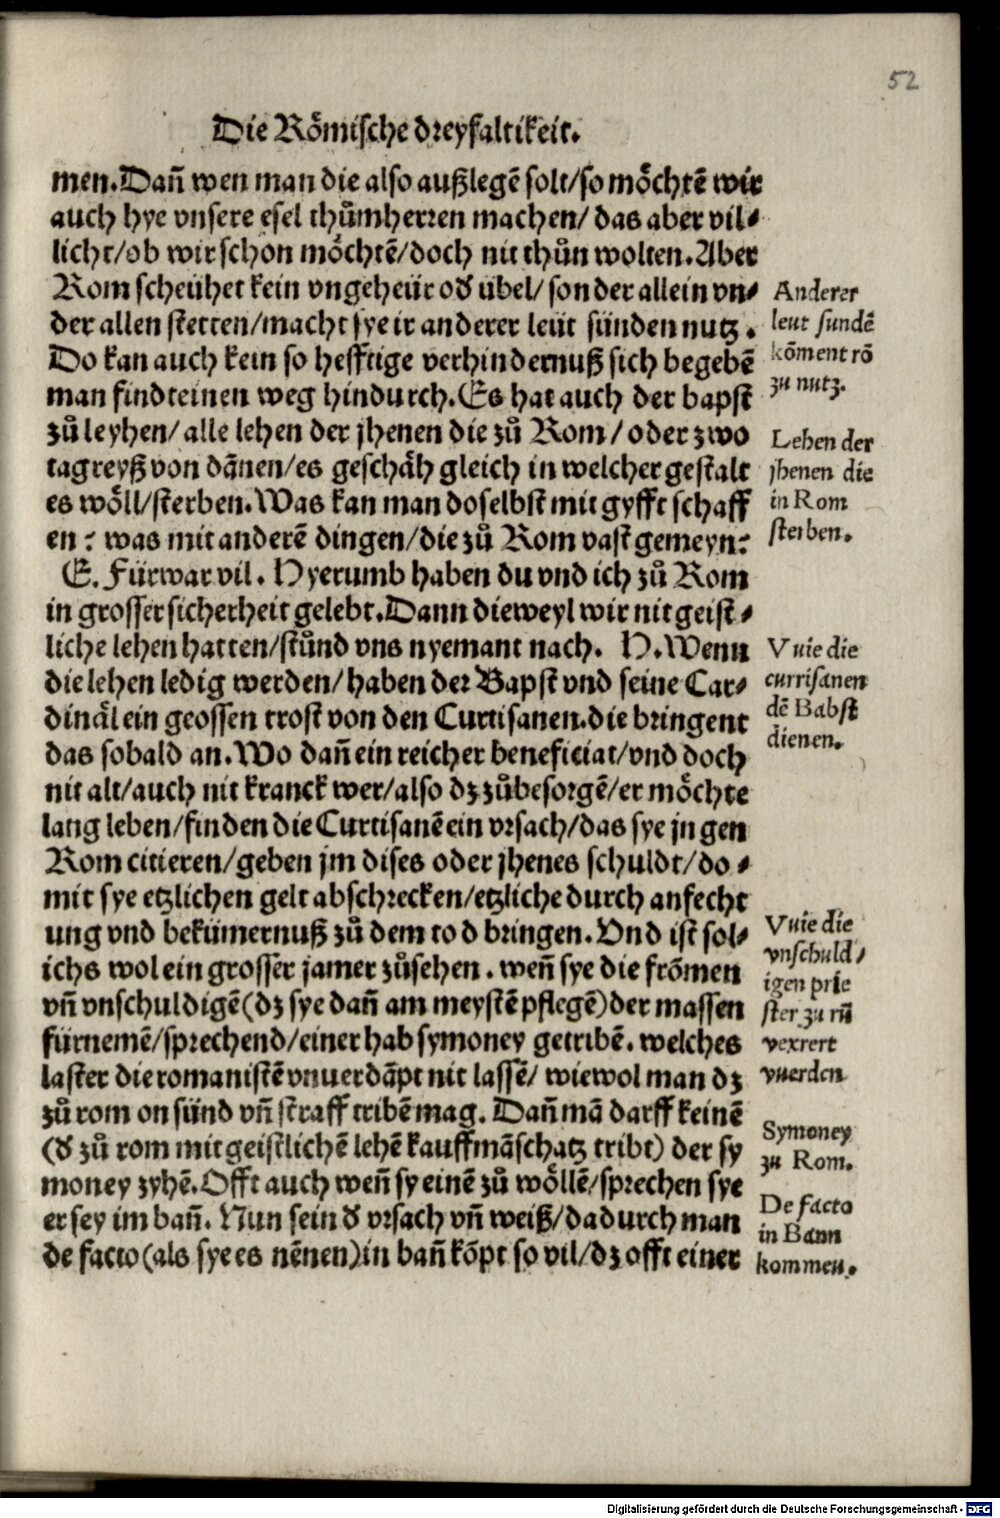 52
Die Römische dreyfaltikeit.
men.Dañ wen man die also außlegẽ solt/so möchtẽ wir
auch hye vnsere esel thůmherren machen/ das aber vil⸗
licht/ob wir schon möchtẽ/doch nit thůn wolten.Aber
Rom scheühet kein vngeheür oď übel/ sonder allein vn⸗
der allen stetten/macht sye ir anderer leüt sünden nutz.
Do kan auch kein so hefftige verhindernuß sich begebẽ
man findt einen weg hindurch.Es hat auch der bapst
zů leyhen/ alle lehen der jhenen die zů Rom/ oder zwo
tagreyß von dãnen/es geschäh gleich in welcher gestalt
es wöll/sterben.Was kan man doselbst mit gyfft schaff
en: was mit anderẽ dingen/die zů Rom vast gemeyn:
E. Fürwar vil. Hyerumb haben du vnd ich zů Rom
in grosser sicherheit gelebt.Dann dieweyl wir nit geist⸗
liche lehen hatten/stůnd vns nyemant nach. H.Wenn
die lehen ledig werden/ haben der Bapst vnd seine Car⸗
dinäl ein geossen trost von den Curtisanen.die bringent
das sobald an.Wo dañ ein reicher beneficiat/vnd doch
nit alt/auch nit kranck wer/also dz zůbesorgẽ/er möchte
lang leben/finden die Curtisanẽ ein vrsach/das sye jn gen
Rom citieren/geben jm dises oder jhenes schuldt/do⸗
mit sye etzlichen gelt abschrecken/etzliche durch anfecht
ung vnd bekümernuß zů dem tod bringen.Vnd ist sol⸗
ichs wol ein grosser jamer zůsehen. weñ sye die frõmen
vñ vnschuldigẽ(dz sye dañ am meystẽ pflegẽ)der massen
fürnemẽ/sprechend/einer hab symoney getribẽ. welches
laster die romanistẽ vnuerdãpt nit lassẽ/ wiewol man dz
zů rom on sünd vñ straff tribẽ mag. Dañ mã darff keinẽ
(ď zů rom mit geistlichẽ lehẽ kauffmãschatz tribt) der sy
money zyhẽ.Offt auch weñ sy einẽ zů wöllẽ/sprechen sye
er sey im bañ. Nun sein ď vrsach vñ weiß/dadurch man
de facto(als sye es nẽnen)in bañ kõpt so vil/dz offt einer
Anderer
leut sundẽ
kõment rõ
zu nutz.
Lehen der
jhenen die
in Rom
sterben.
VVie die
curtisanen
dẽ Babst
dienen.
VVie die
vnschuld⸗
igen prie
ster zu rũ
vexrert
vuerden
Symoney
zu Rom.
De facto
in Bann
kommen.
Digitalisierung gefördert durch die Deutsche Forschungsgemeinschaft - DFG